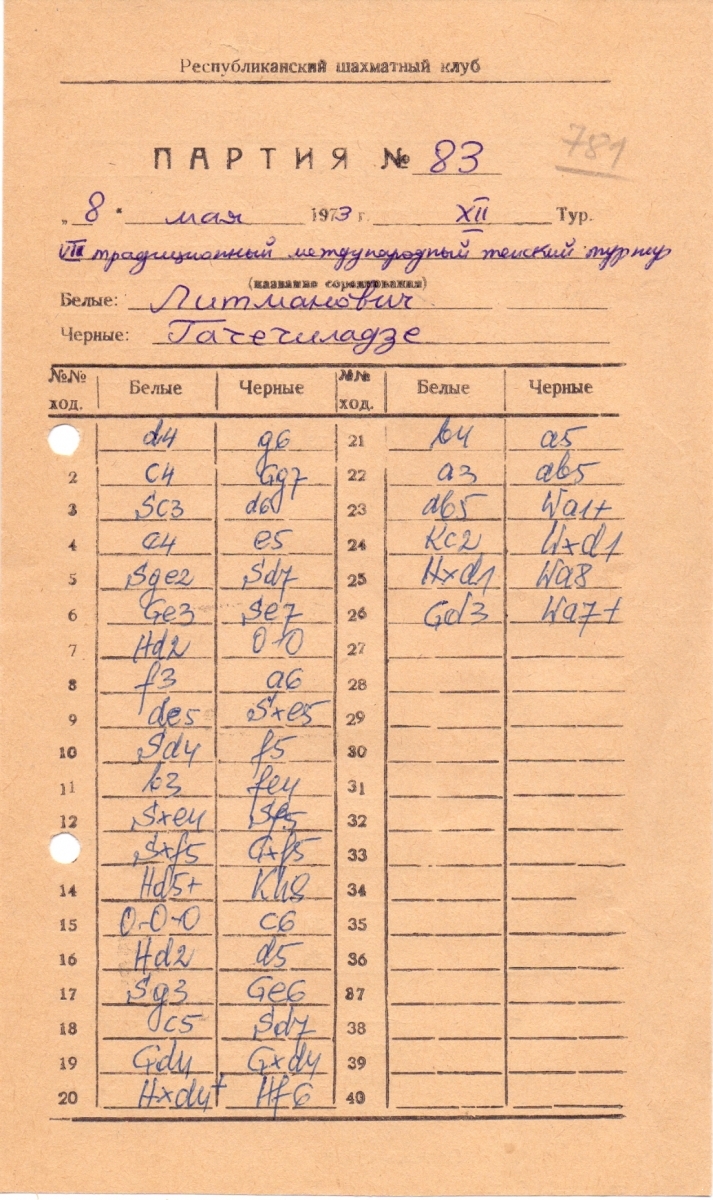 Республиканский шахматный клуб
781
ПАРТИЯ № 83
„ 8 " мая 1973 г. XII Тур.
VIII традиционный международный женский турнир
(название соревнования)
Белые: Литманович
Черные: Гачечиладзе
№№ ход. Белые Черные №№ ход. Белые Черные
d4 g6 21 b4 a5
2 c4 Gg7 22 a3 ab5
3 Sc3 d6 23 ab5 Wa1+
4 e4 e5 24 Kc2 Wxd1
5 Sge2 Sd7 25 Hxd1 Wa8
6 Ge3 Se7 26 Gd3 Wa7+
7 Hd2 0-0 27
8 f3 a6 28
9 de5 Sxe5 29
10 Sd4 f5 30
11 b3 fe4 31
12 Sxe4 Sf5 32
Sxf5 Gxf5 33
14 Hd5+ Kh8 34
15 0-0-0 c6 35
16 Hd2 d5 36
17 Sg3 Ge6 37
18 c5 Sd7 38
19 Gd4 Gxd4 39
20 Hxd4+ Hf6 40